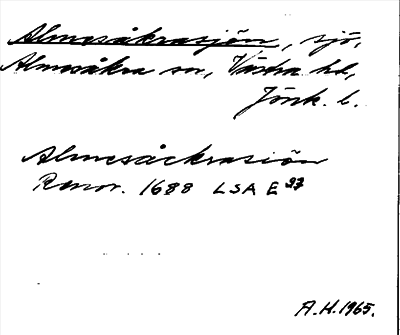 Almesåkrasjön, sjö,
Almesåkra sn, Västra hd,
Jönk. l.
Almesåckrasiön
Renov. 1688 LSA E 27
A.H. 1965.